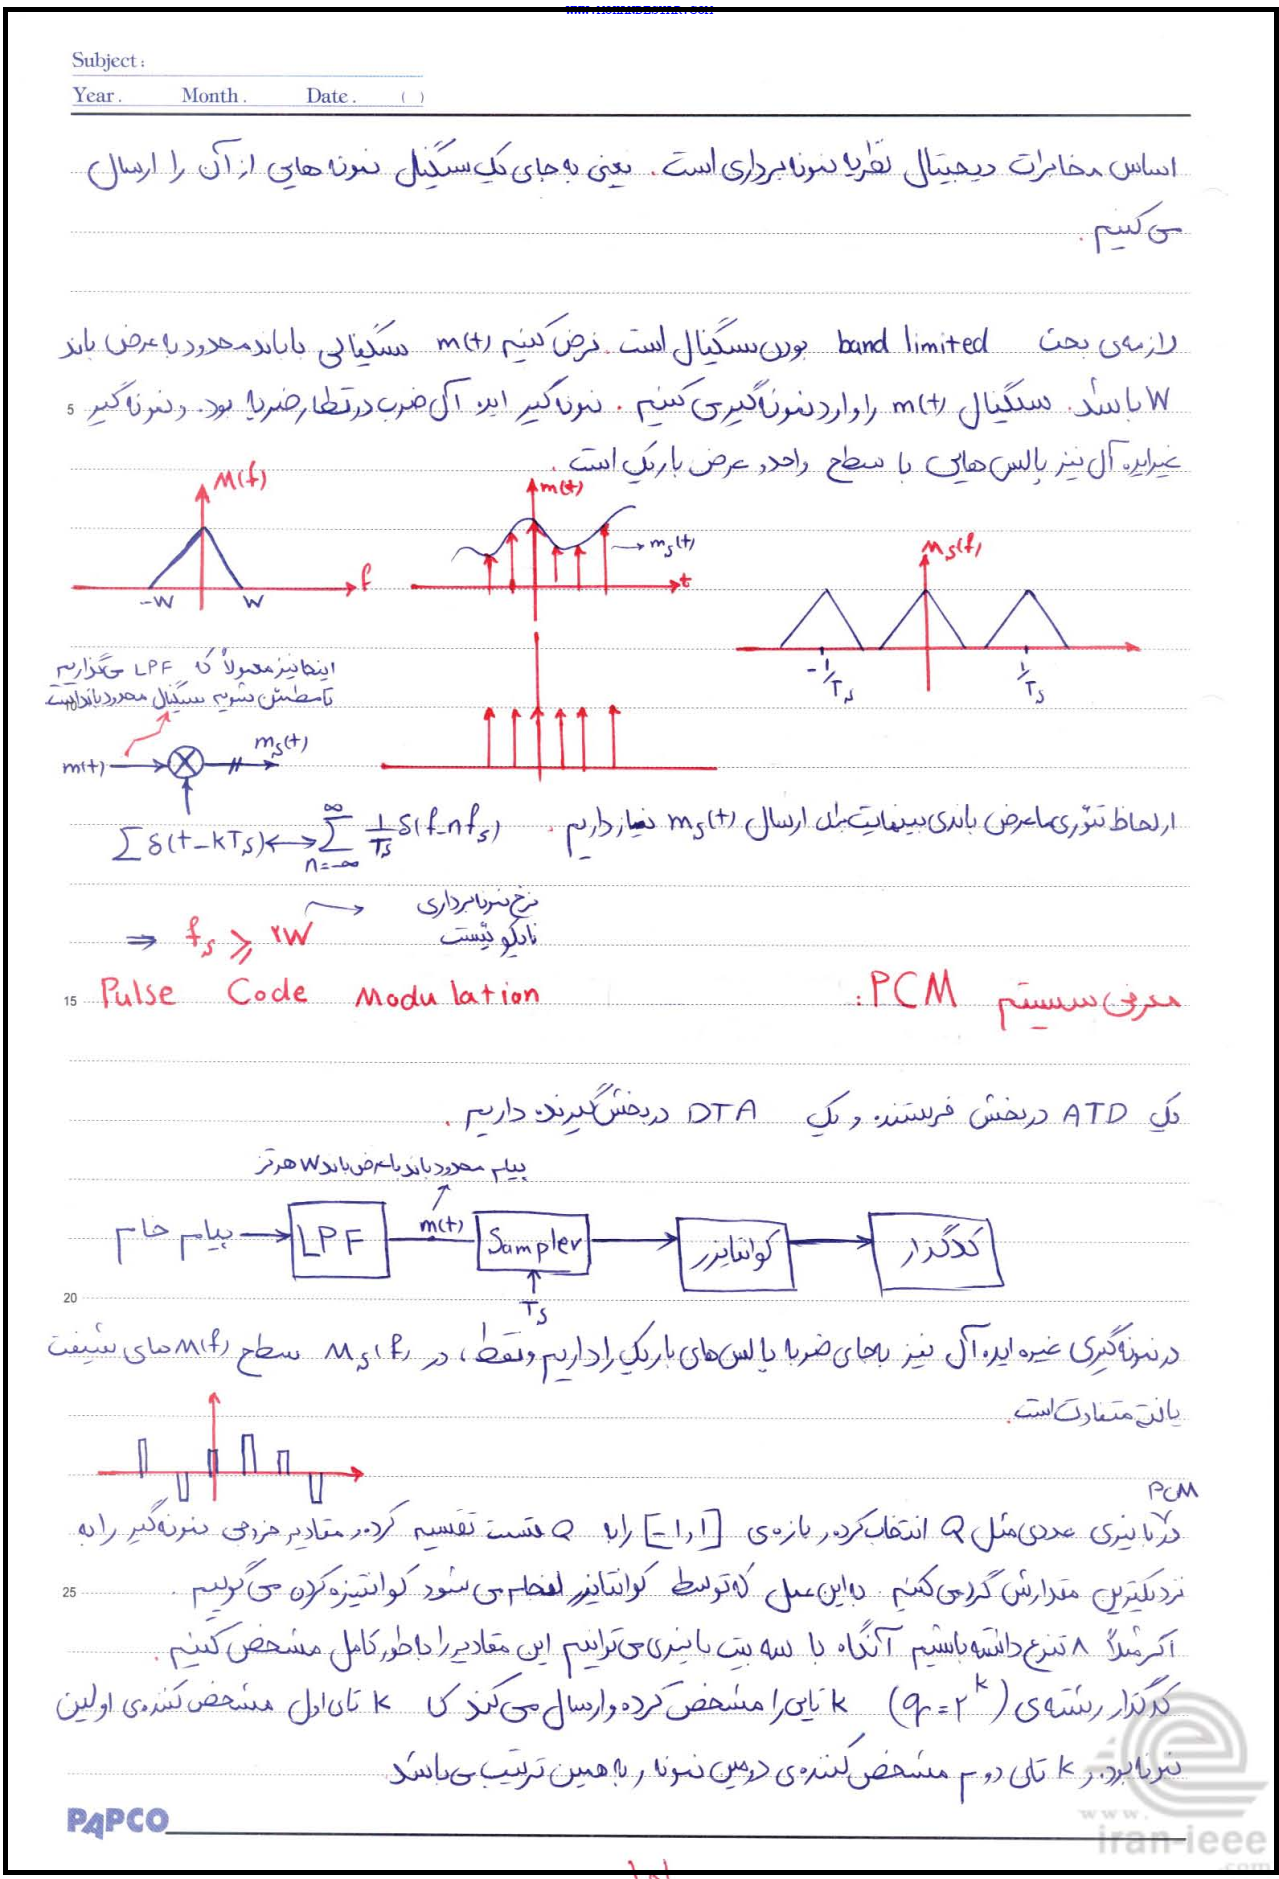 WWW.MOHANDESYAR.COM
Subject:
Year. Month. Date. ( )
اساس مخابرات دیجیتال نظریه نمونه برداری است. یعنی به جای یک سیگنال نمونه هایی از آن را ارسال
می کنیم.
لازمه‌ی بحث band limited بودن سیگنال است. فرض کنیم m(t) سیگنالی با باند محدود به عرض باند
5 W باشد. سیگنال m(t) را وارد نمونه گیر می کنیم. نمونه گیر ایده آل ضرب در قطار ضربه بود. و نمونه گیر
غیر ایده آل نیز پالس هایی با سطح واحد و عرض باریک است.
M(f)
f
-W W
m(t)
→ m_s(t)
t
M_s(f)
-1/T_s 1/T_s
اینجا نیز معمولاً که LPF می گذاریم
تا مطمئن شویم سیگنال محدود باند است.
m(t) m_s(t)
∑ δ(t-kTs) ↔ ∑_{n=-∞}^{∞} 1/Ts δ(f-nf_s)
از لحاظ تئوری ما عرض باندی بینهایت برای ارسال m_s(t) نیاز داریم.
⇒ f_s ≥ ۲W
نرخ نمونه برداری
نایکوئیست
15 Pulse Code Modulation معرفی سیستم PCM :
یک ATD در بخش فرستنده و یک DTA در بخش گیرنده داریم.
پیام محدود باند با عرض باند W هرتز
پیام خام LPF m(t) Sampler کوانتایزر کدگذار
20
Ts
در نمونه گیری غیره ایده آل نیز به جای ضربه پالس های باریک را داریم و فقط، در M_s(f) سطح M(f) های شیفت
یافته متفاوت است.
PCM
در باینری عددی مثل Q انتخاب کرده و بازه ی [-1,1] را به Q قسمت تقسیم کرده و مقادیر خروجی نمونه گیر را به
25 نزدیکترین مقدارش گرد می کنیم. به این عمل که توسط کوانتایزر انجام می شود کوانتیزه کردن می گوییم.
اگر مثلاً ۸ تنوع داشته باشیم آنگاه با سه بیت باینری می توانیم این مقادیر را به طور کامل مشخص کنیم.
کدگذار رشته ی (q=۲^k) k تایی را مشخص کرده و ارسال می کند که k تای اول مشخص کننده ی اولین
نمونه بود. و k تای دوم مشخص کننده ی دومین نمونه و به همین ترتیب می باشد
PAPCO
www.
iran-ieee
.com